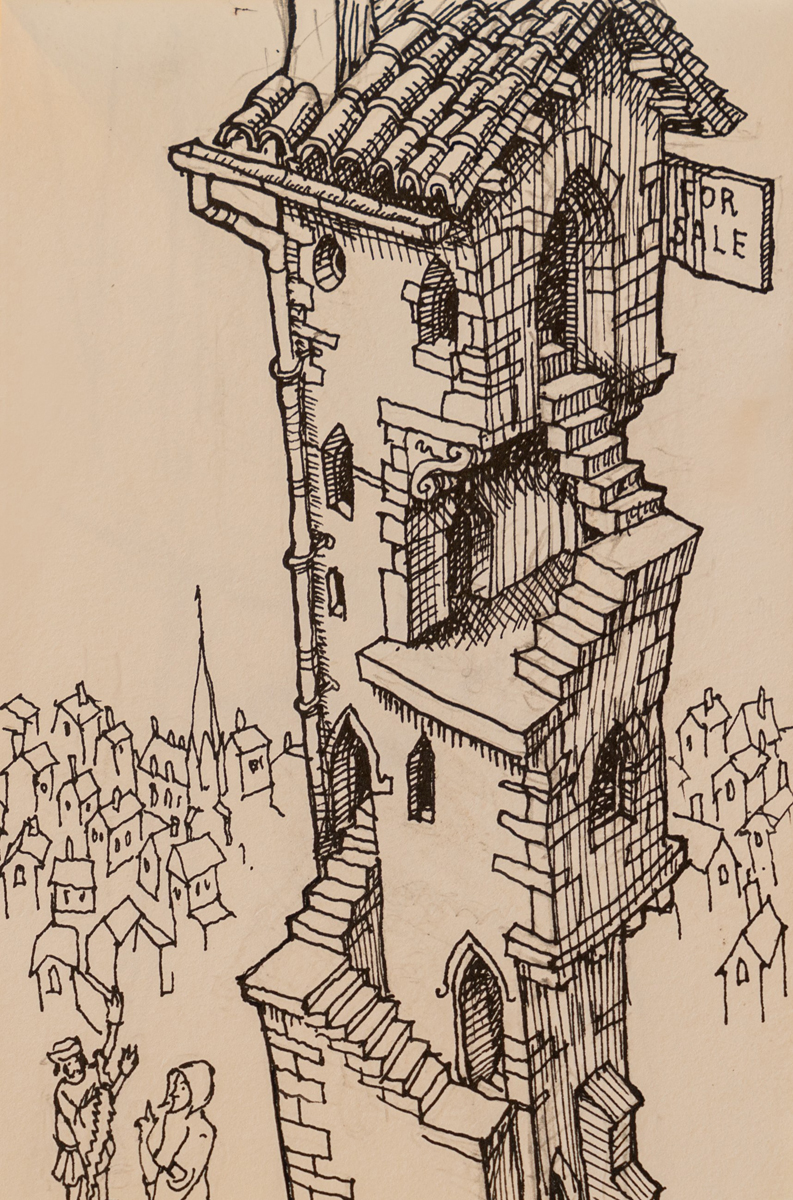 FOR
SALE